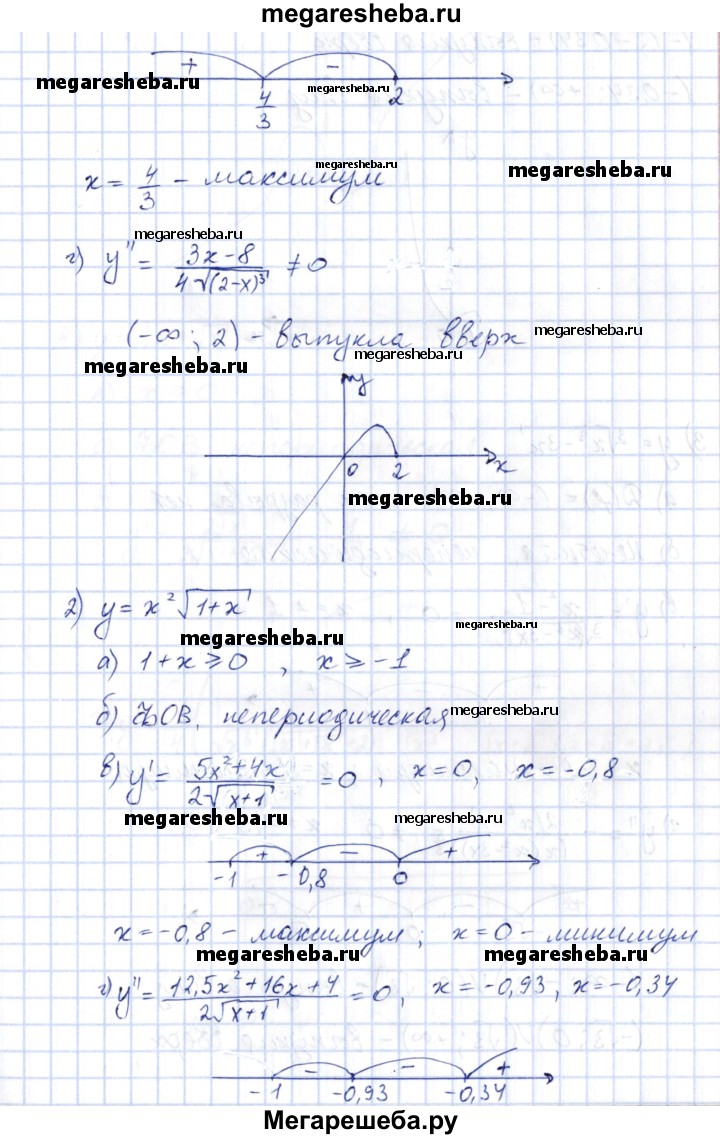 megaresheba.ru
+ −
megaresheba.ru megaresheba.ru megaresheba.ru
4/3 2
megaresheba.ru
x = 4/3 - максимум
megaresheba.ru
megaresheba.ru
г) y'' = (3x-8)/(4√(2-x)³) ≠ 0
(-∞; 2) - выпукла вверх megaresheba.ru
megaresheba.ru megaresheba.ru
y
0 2 x
megaresheba.ru
2) y = x²√(1+x)
megaresheba.ru megaresheba.ru
а) 1+x ≥ 0 , x ≥ -1
б) ФОВ, непериодическая megaresheba.ru
в) y' = (5x²+4x)/(2√(x+1)) = 0 , x=0, x=-0,8
megaresheba.ru megaresheba.ru
+ − +
-1 -0,8 0
x=-0,8 - максимум; x=0 - минимум
megaresheba.ru megaresheba.ru
г) y'' = (12,5x²+16x+4)/(2√(x+1)) = 0, x=-0,93, x=-0,34
− − +
-1 -0,93 -0,34
Мегарешеба.ру